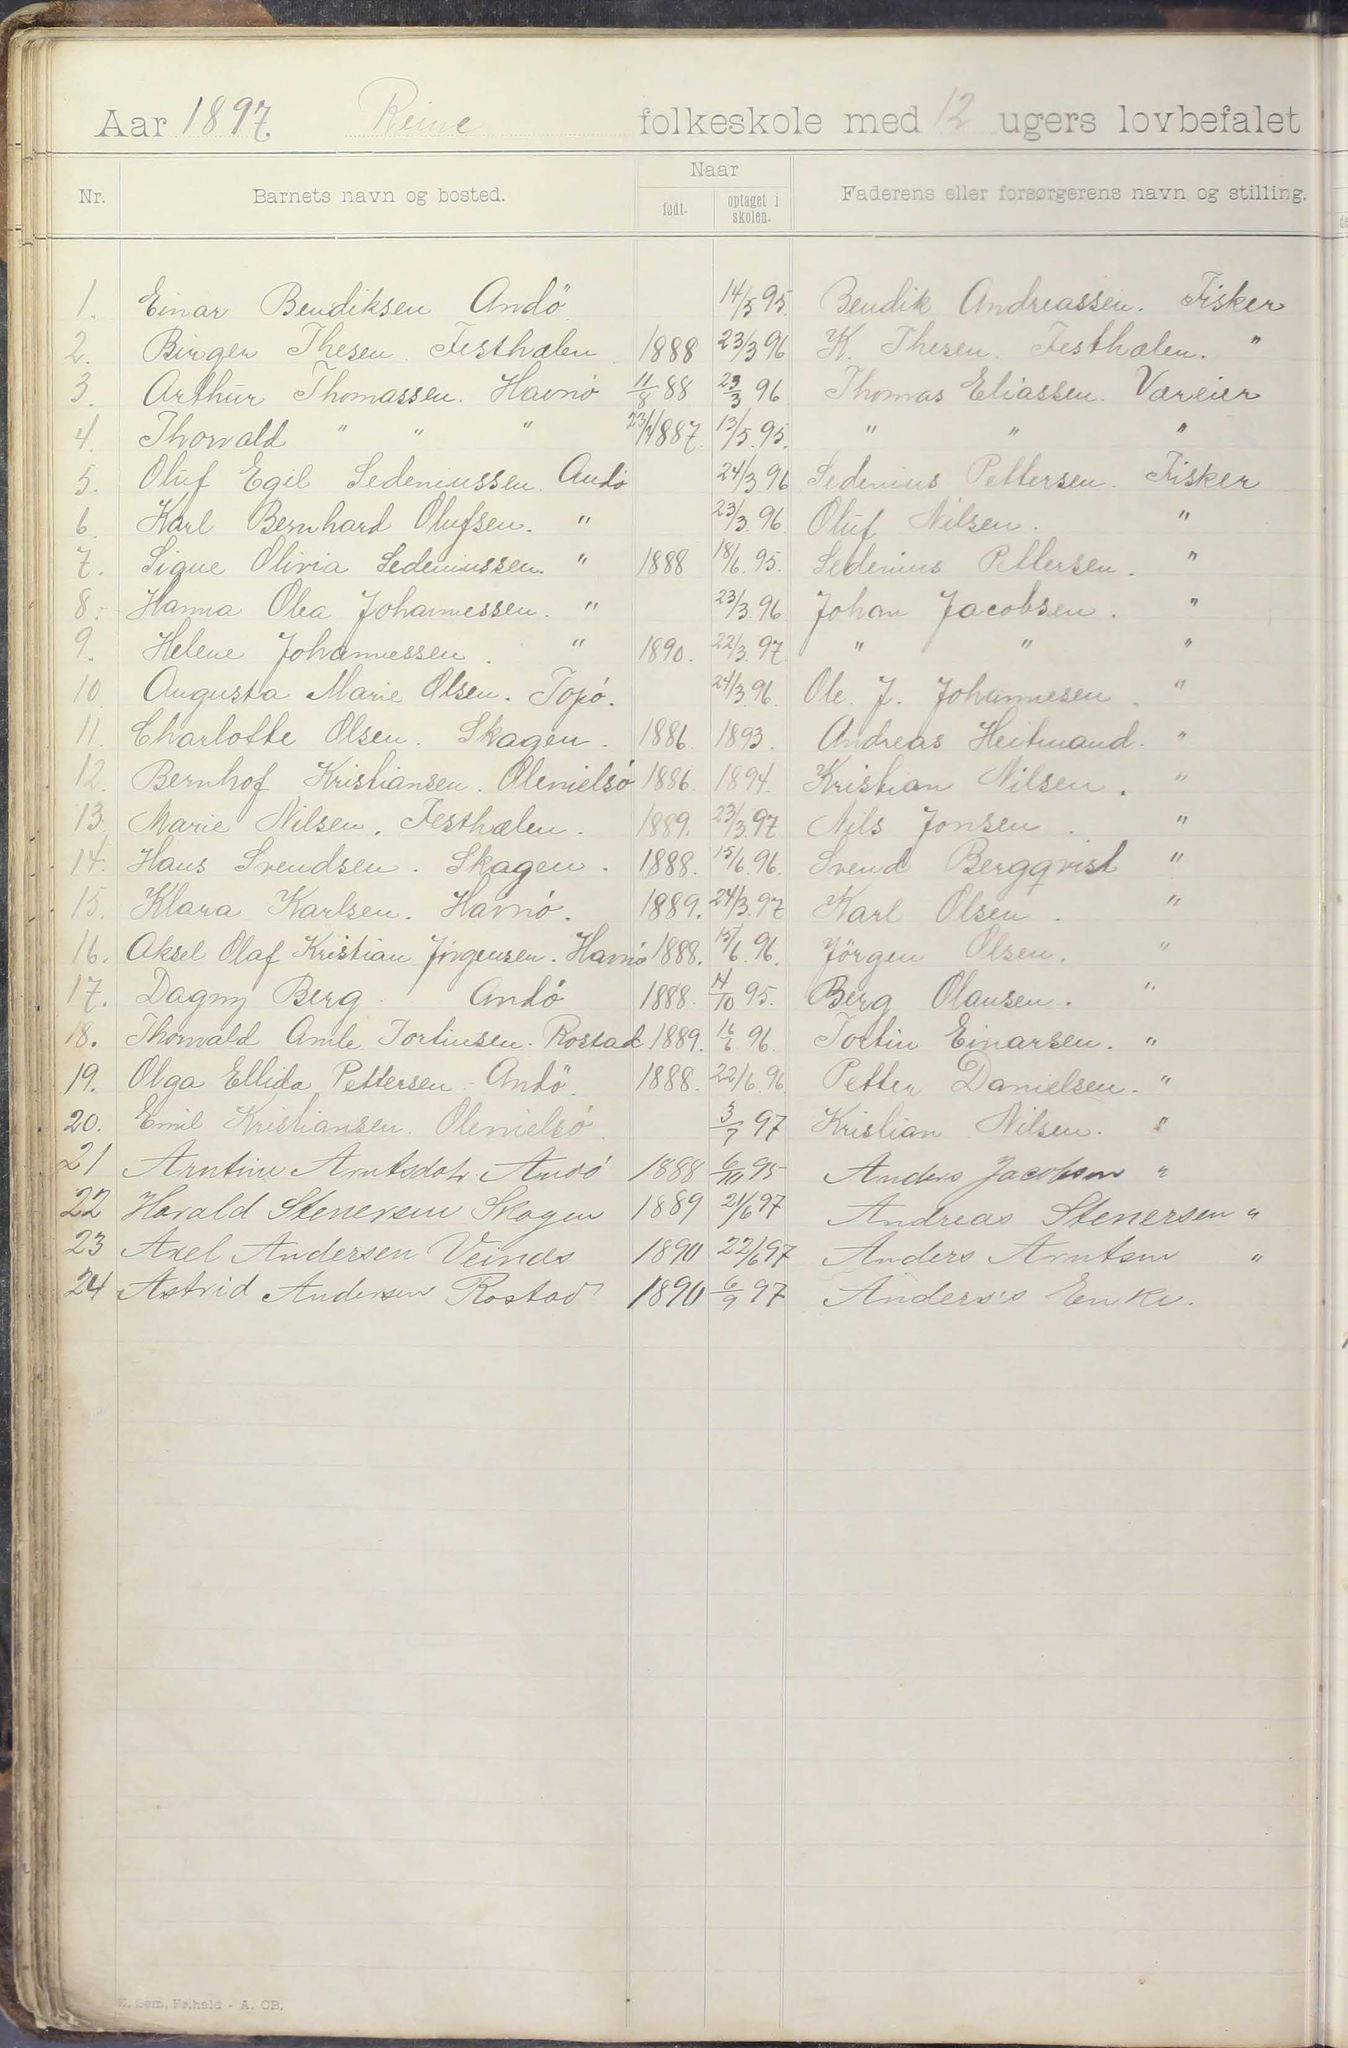 Aar 1897. Reine folkeskole med 12 ugers lovbefalet
Nr. Barnets navn og bosted. Naar født. optaget i skolen. Faderens eller forsørgerens navn og stilling.
1. Einar Bendiksen Andö 14/5 95. Bendik Andreassen. Fisker
2. Birger Thesen. Festhælen 1888 23/3 96 K. Thesen. Festhælen. "
3. Arthur Thomassen. Havnö 11/8 88 23/3 96 Thomas Eliassen. Væreier
4. Thorvald " " " 23/4 1887. 13/5. 95. " " "
5. Oluf Egil Sedeniussen. Andö 24/3. 96 Sedenius Pettersen. Fisker
6. Karl Bernhard Olufsen. " 23/3. 96. Oluf Nilsen. "
7. Signe Olivia Sedeniussen. " 1888 18/6. 95. Sedenius Pettersen. "
8. Hanna Olea Johannessen. " 23/3. 96 Johan Jacobsen. "
9. Helene Johannessen. " 1890. 22/3. 97. " " "
10 Augusta Marie Olsen. Topö. 24/3. 96. Ole. J. Johannesen. "
11. Charlotte Olsen. Skagen. 1886. 1893. Andreas Heitmand. "
12. Bernhof Kristiansen. Olenielsö 1886. 1894. Kristian Nilsen. "
13. Marie Nilsen. Festhælen. 1889. 23/3. 97 Nils Jonsen. "
14. Hans Svendsen. Skagen. 1888. 15/6. 96. Svend Bergqvist "
15. Klara Karlsen. Havnö. 1889. 24/3. 97 Karl Olsen. "
16. Aksel Olaf Kristian Jörgensen. Havnö 1888. 15/6. 96. Jörgen Olsen. "
17. Dagny Berg. Andö 1888. 14/10 95. Berg Olausen. "
18. Thorvald Amle Tortinsen. Rostad 1889. 16/6 96. Tortin Einarsen. "
19. Olga Ellida Pettersen. Andö. 1888. 22/6. 96. Petter Danielsen. "
20. Emil Kristiansen. Olenielsö. 3/7 97 Kristian Nilsen. "
21 Arntine Arntsdatr Andö 1888 6/10 95 Anders Jacobsen "
22 Harald Stenersen Skagen 1889 21/6 97 Andreas Stenersen "
23 Axel Andersen Veines 1890 22/6 97 Anders Arntsen "
24 Astrid Andersen Rostad 1890 6/9 97 Anders's Enke.